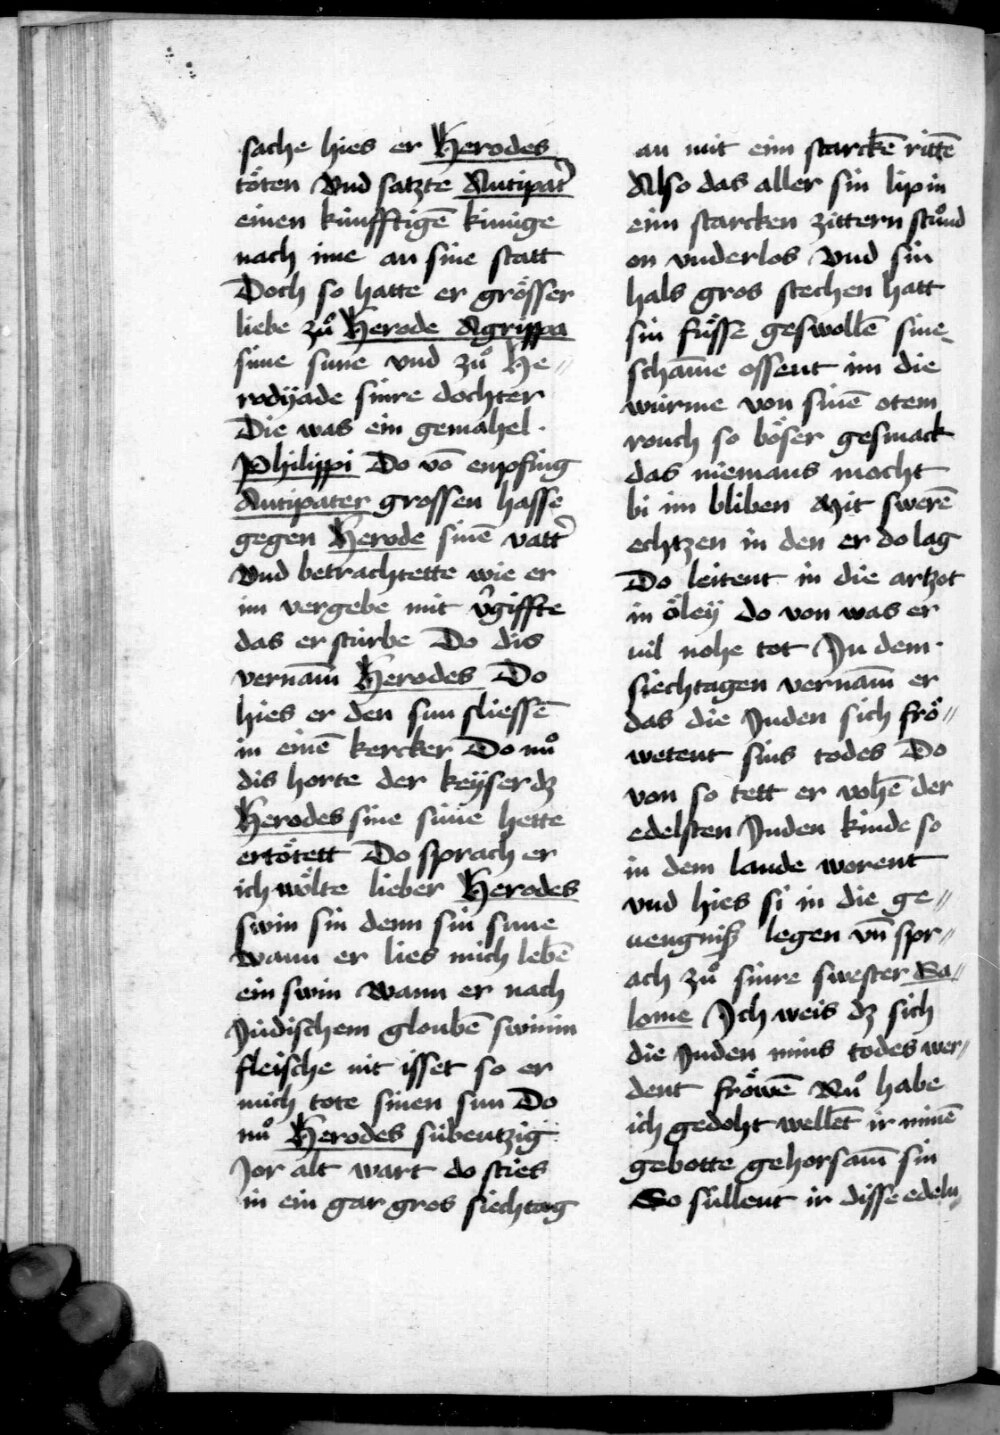 sache hies er Herodes
töten Vnd satzte Antipat᷑
einen künfftigē künige
nach ime an sine statt
Doch so hatte er grösser
liebe zuͦ Herode Agrippa
sime sune vnd zuͦ He-
rodÿade sinre dochter
Die was ein gemahel ·
Philippi Do vō enpfing
Antipater grossen hasse
gegen Herode sinē vatt᷑
Vnd betrachtette wie er
im vergebe mit v᷑giffte
das er stürbe Do dis
vernam̄ Herodes Do
hies er den sun sliessē
in einē kercker Do nuͦ
dis horte der keÿser dz
Herodes sine süne hette
ertötett Do sprach er
ich wölte lieber Herodes
swin sin denn sin sune
wann er lies mich lebē
ein swin Wann er nach
Jüdischem gloubē swinin
fleische nit isset so er
mich tote sinen sun Do
nuͦ Herodes sübentzig
Jor alt wart do sties
in ein gar gros siechtag
an mit eim starckē rittē
Also das aller sin lip in
eim starcken zittern stuͦnd
on vnderlos Vnd sin
hals gros stechen hatt
sin füsse geswollē sine
scham̄e ossent im die
würme von sinē otem
rouch so böser gesmack
das niemans mocht
bi im bliben Mit swerē
echtzen in den er do lag
Do leitent in die artzot
in öleÿ do von was er
vil nohe tot In dem ·
siechtagen vernam̄ er
das die Juden sich frö-
wetent sins todes Do
von so tett er vohē der
edelsten Juden kinde so
in dem lande worent
vnd hies si in die ge-
uengniß legen vn̄ spr-
ach zuͦ sinre swester Sa-
lome Ich weis dz sich
die Juden mins todes wer-
dent fröwē Nuͦ habe
ich gedoht wellēt ir minē
gebotte gehorsam̄ sin
So süllent ir disse edeln